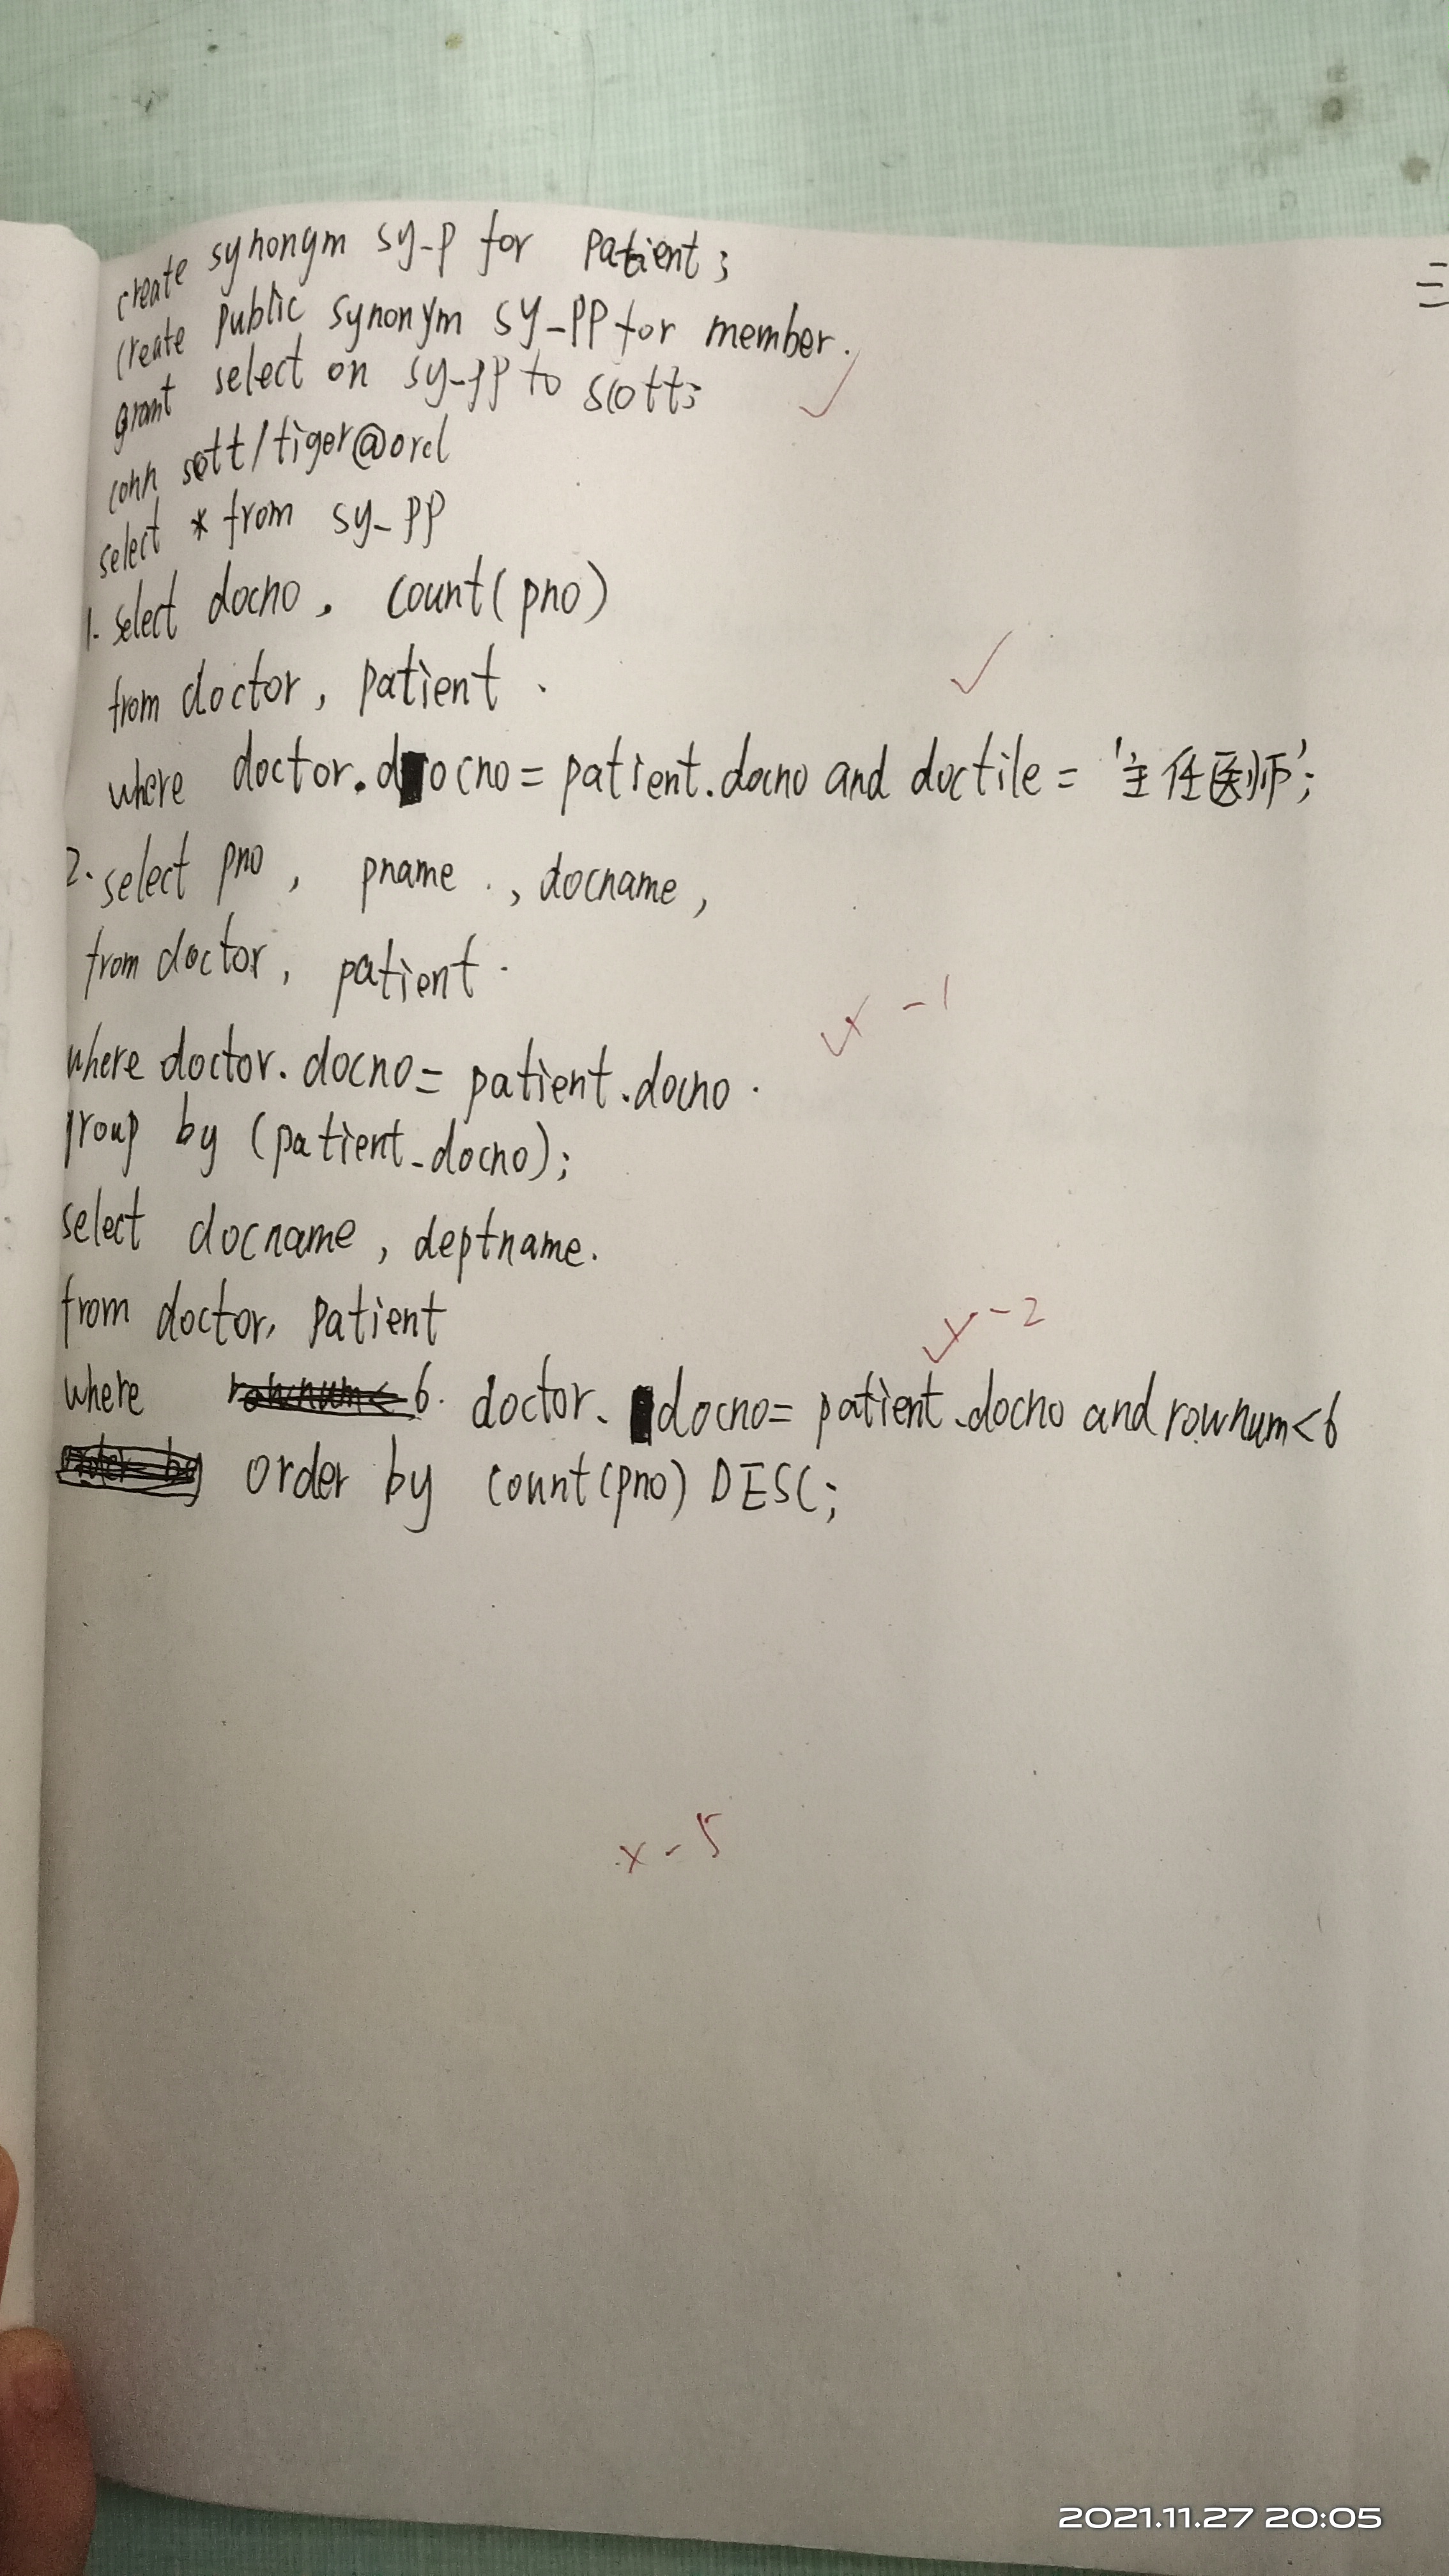 create synongm sy-p for patient;
create public synonym sy-pp for member.
grant select on sy-pp to scott;
conn sott/tiger@orcl
select * from sy-pp
1. select docno, count(pno)
from doctor, patient.
where doctor.docno = patient.docno and doctile = '主任医师';
2. select pno, pname., docname,
from doctor, patient.
-1
where doctor.docno = patient.docno.
group by (patient-docno);
select docname, deptname.
from doctor, patient
-2
where 6. doctor.docno = patient.docno and rownum<6
order by count(pno) DESC;
x-5
三
2021.11.27 20:05